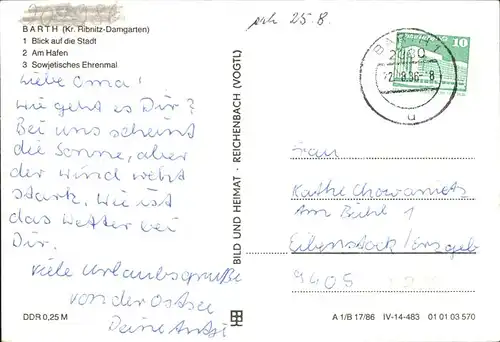 erh 25.8.
BARTH (Kr. Ribnitz-Damgarten)
1 Blick auf die Stadt
2 Am Hafen
3 Sowjetisches Ehrenmal
Liebe Oma!
Wie geht es Dir?
Bei uns scheint
die Sonne, aber
der Wind weht
stark. Wie ist
das Wetter bei
Dir.
Viele Urlaubsgrüße
von der Ostsee
Deine Antje
DDR 0,25 M
BILD UND HEIMAT · REICHENBACH (VOGTL)
BARTH 1
10
u
Frau
Käthe Chowanietz
Am Bühl 1
Eibenstock/Erzgeb
9405
A 1/B 17/86 IV-14-483 01 01 03 570